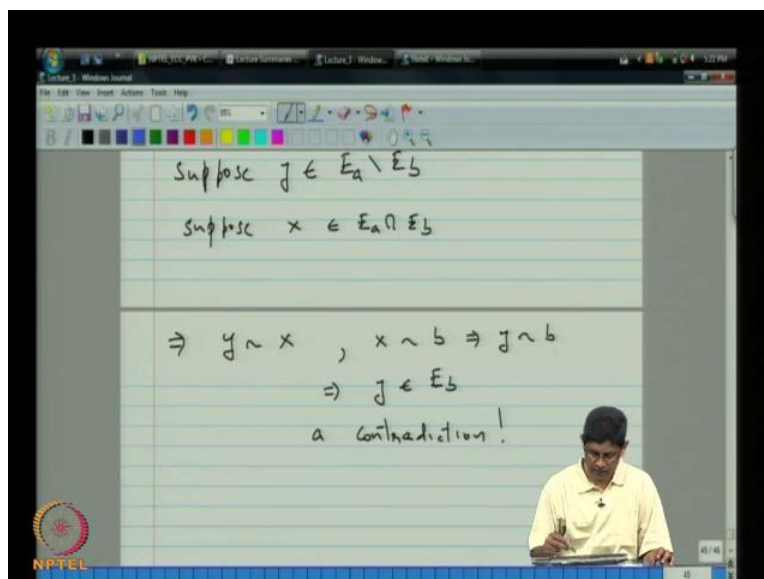 Lecture_3 - Windows Journal
File Edit View Insert Actions Tools Help
suppose y ∈ E_a \ E_b
suppose x ∈ E_a ∩ E_b
⇒ y ~ x , x ~ b ⇒ y ~ b
⇒ y ∈ E_b
a contradiction!
NPTEL